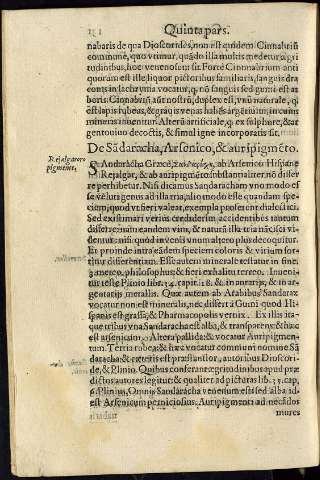 Quinta pars.
nabaris de qua Dioscorides, non est quidem Cinnabriũ
commune, quo vtimur, quãdo illa multis medetur ægri
tudinibus, hoc venenosum sit. Forte Cinnabrium anti
quorum est ille liquor pictoribus familiaris, sanguis dra
conis in lachryma vocatur, q̃ nõ sanguis sed gumi est ar
boris. Cinnabriũ, aũt nostrũ, duplex est, vnũ naturale, q̃
est lapis rubeus, & grauis venas habẽs argẽteas, in cuius
mineris inuenitur. Alterũ artificiale, q̃ ex sulphure, & ar
gento viuo decoctis, & simul igne incorporatis fit.
De Sãdaracha, Arsenico, & auripigmẽto.
Rejalgar oro
pigmente.
SAndaracha Græcè, ab Arsenico Hispane
Rejalgar, & ab auripigmẽto substantialiter nõ differ
re perhibetur. Nisi dicamus Sandaracham vno modo es
se velut genus ad illa tria, alio modo esse quandam spe-
ciem, quod vt fieri valeat, exempla profert in dialectici.
Sed existimari verius crediderim accidentibus tantum
differre, nam eandem vim, & naturã illa tria nãcisci vi-
dentur: nisi quod in vene vnum altero plus decoquitur.
Et proinde intra eãdem speciem coloris & virium sor-
titur differentiam. Esse autem minerale testatur in fine.
3. meteo. philosophus; & fieri exhalitu terreo. Inueni-
tur teste Plinio lib. 34. capit. 18. &. in aurarijs, & in ar-
gentarijs metallis. Quæ autem ab Arabibus Sandarax
vocatur non est mineralis, nec differt à Gumi quod His
panis est grassa, & Pharmacopolis vernix. Ex illis ita-
que tribus vna Sandaracha est alba, & transparens, & hæc
est arsenicum. Altera pallida: & vocatur Auripigmen-
tum. Tertia rubea: & hæc vocatur communi nomine Sã
daracha: & cæteris est præstantior, autoribus Dioscori-
de, & Plinio. Quibus conferant ægritudinibus apud præ
dictos autores legitur: & qualiter ad picturas lib. 35. cap.
6. Plinius, Omnis Sandaracha venenum est sed alba id-
est Arsenicum perniciosius. Auripigmenti ad necãdos
mures